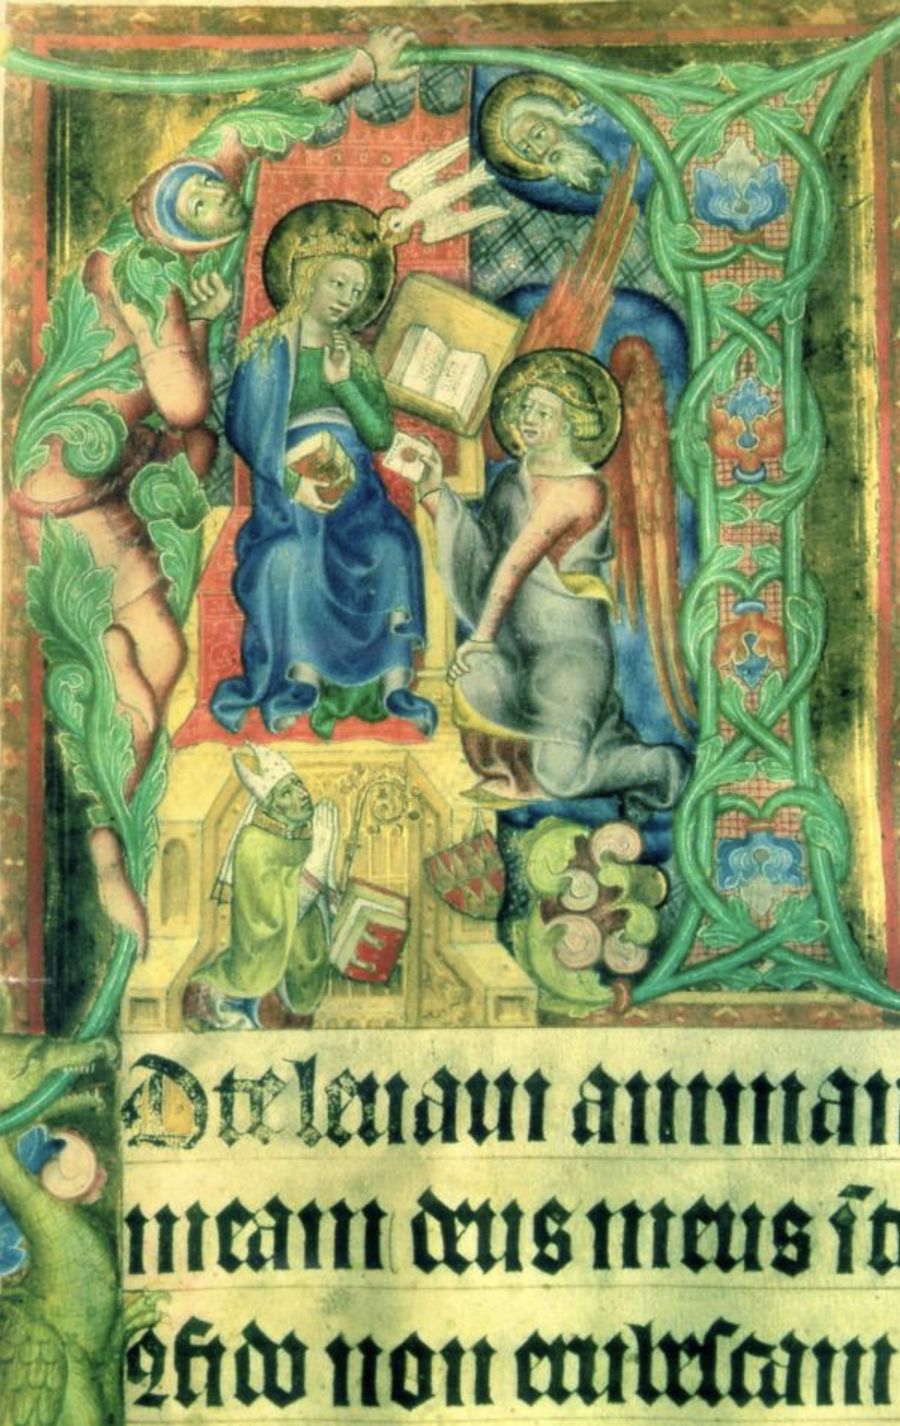 Dte leuaui animam
meam deus meus ī t
ꝯfido non erubescam